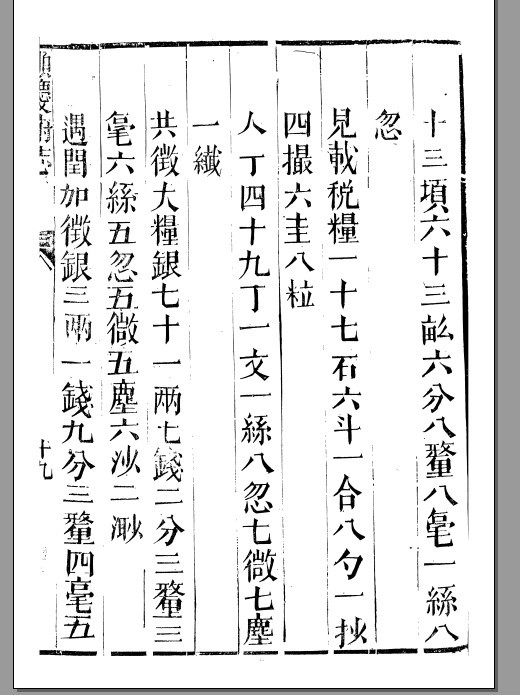 十三頃六十三畝六分八釐八毫一絲八
忽
見載税糧一十七石六斗一合八勺一抄
四撮六圭八粒
人丁四十九丁一文一絲八忽七微七塵
一纖
共徵大糧銀七十一兩七錢二分三釐三
毫六絲五忽五微五塵六沙二渺
遇閏加徵銀三兩一錢九分三釐四毫五
順德府志
十九